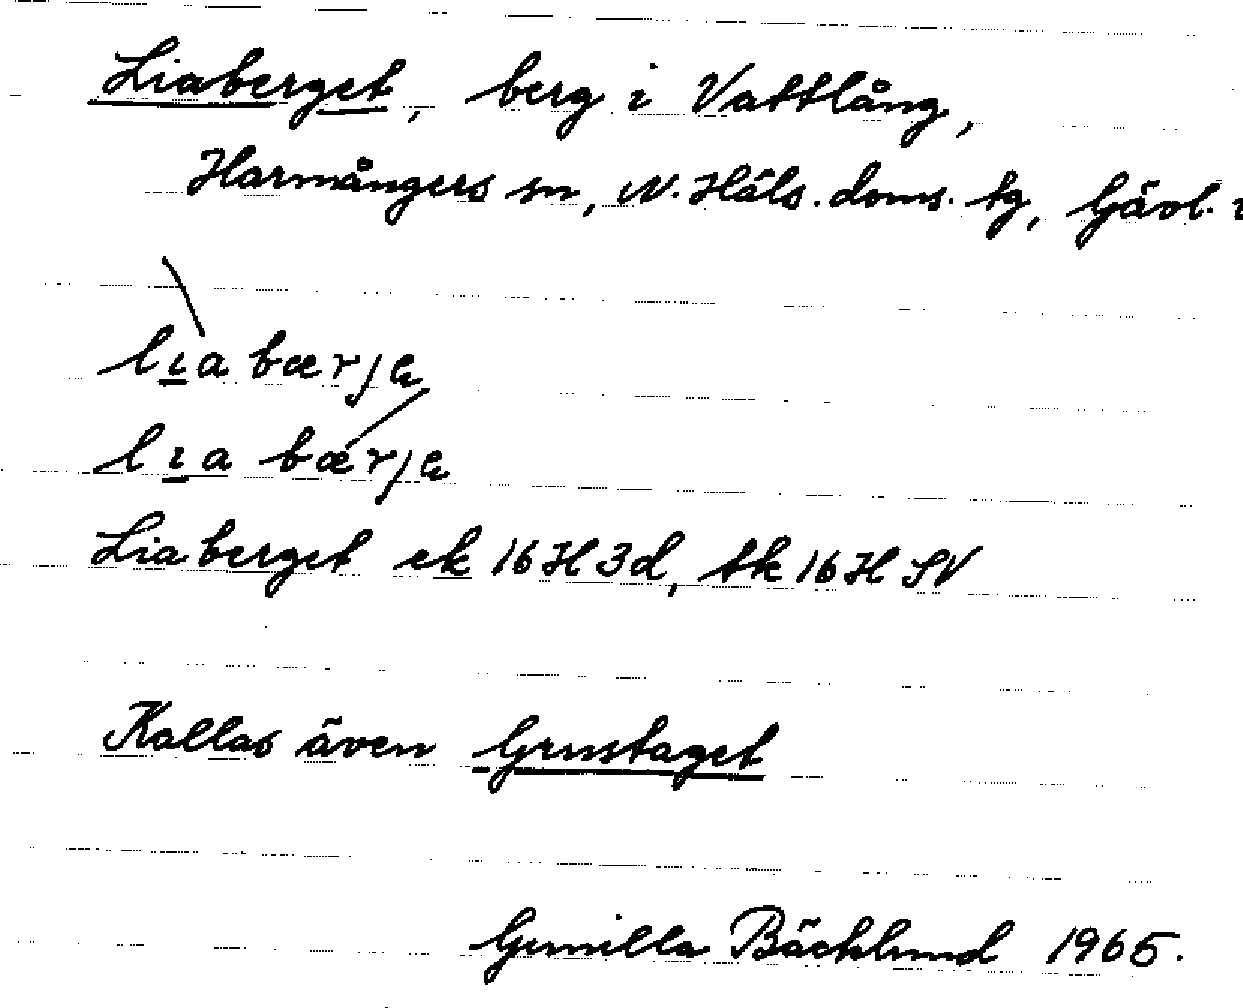 Liaberget, berg i Vattlång,
Harmångers sn, N. Häls. doms. tg, Gävl.
lɩa bærjɐ
lɩa bærjɐ
Liaberget ek 16H3d, tk 16H SV
Kallas även Grustaget
Gunilla Bäcklund 1965.